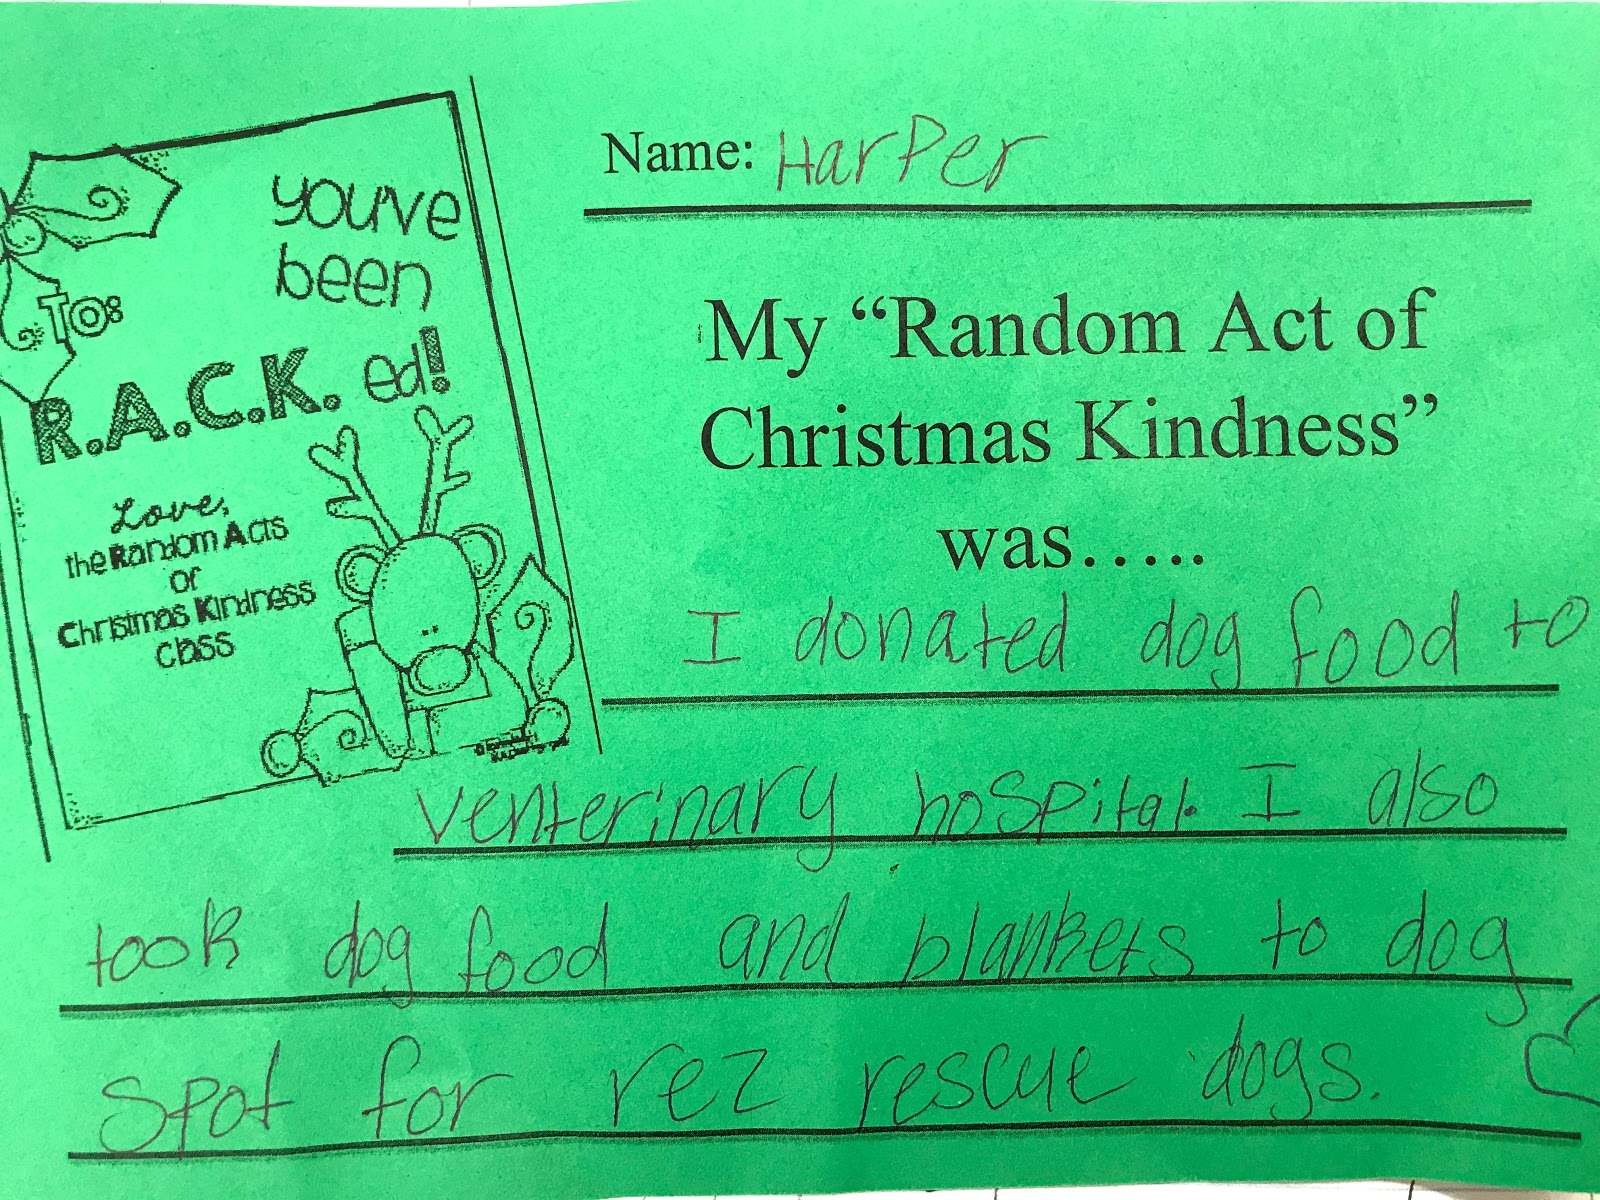 you've
been
TO:
R.A.C.K. ed!
Love,
the Random Acts
of
Christmas Kindness
class
Name: HarPer
My “Random Act of
Christmas Kindness”
was.....
I donated dog food to
venterinary hospital. I also
took dog food and blankets to dog
spot for rez rescue dogs.